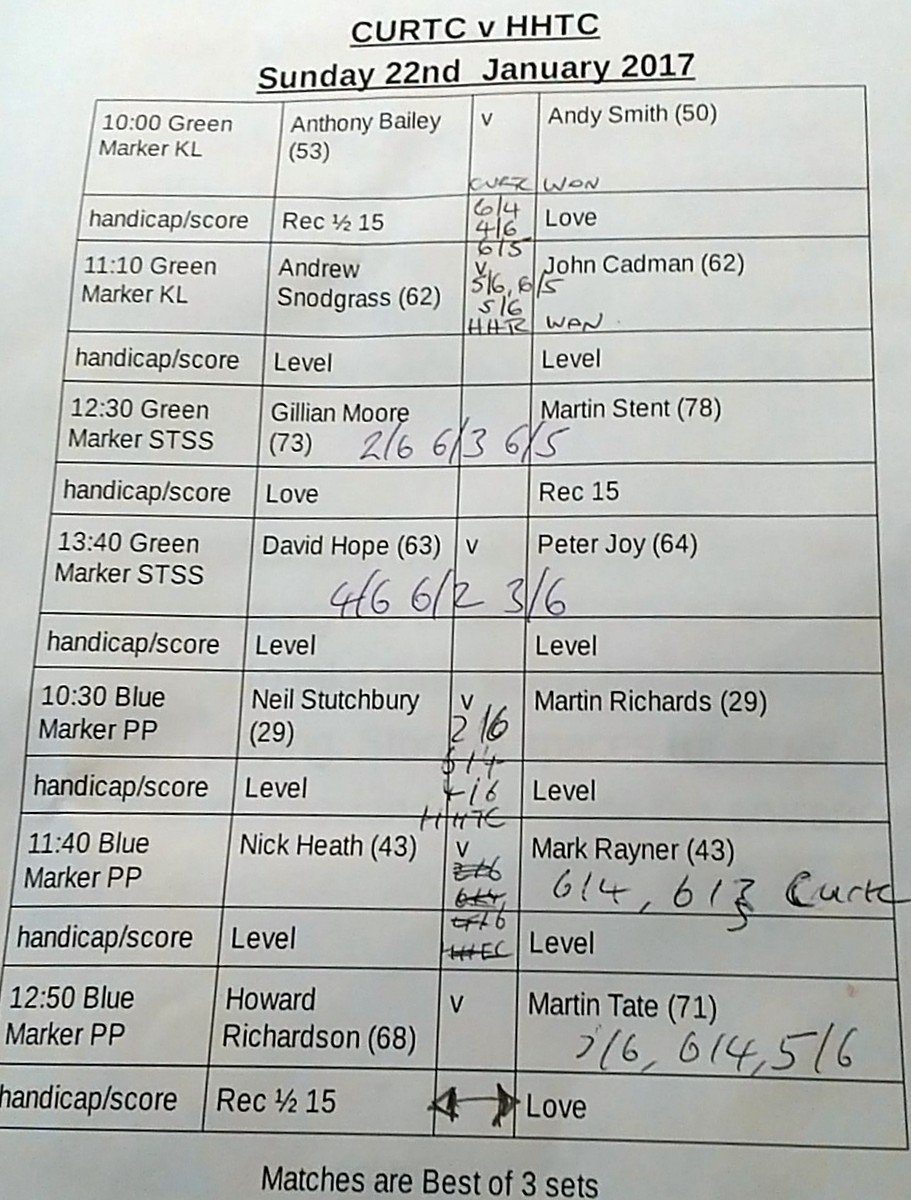 CURTC v HHTC
Sunday 22nd January 2017
10:00 Green Anthony Bailey v Andy Smith (50)
Marker KL (53)
WON
handicap/score Rec ½ 15 6/4 Love
4/6
6/5
11:10 Green Andrew v John Cadman (62)
Marker KL Snodgrass (62) 5/6, 6/5
5/6
HHR WAN
handicap/score Level Level
12:30 Green Gillian Moore Martin Stent (78)
Marker STSS (73) 2/6 6/3 6/5
handicap/score Love Rec 15
13:40 Green David Hope (63) v Peter Joy (64)
Marker STSS
4/6 6/2 3/6
handicap/score Level Level
10:30 Blue Neil Stutchbury v Martin Richards (29)
Marker PP (29) 2/6
6/4
handicap/score Level 4/6 Level
HHTC
11:40 Blue Nick Heath (43) v Mark Rayner (43)
Marker PP 6/4, 6/3 Curtc
5
handicap/score Level Level
12:50 Blue Howard v Martin Tate (71)
Marker PP Richardson (68) /6, 6/4, 5/6
handicap/score Rec ½ 15 Love
Matches are Best of 3 sets